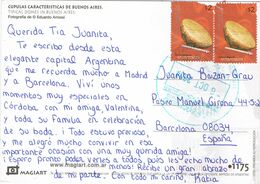 CUPULAS CARACTERISTICAS DE BUENOS AIRES
TYPICAL DOMES IN BUENOS AIRES
Fotografía de © Eduardo Antossi
Querida Tía Juanita,
Te escribo desde esta
elegante capital Argentina
que me recuerda mucho a Madrid
y Barcelona. Viví unos
momentos muy especiales en
Córdoba con mi amiga, Valentina, y
toda su Familia en celebración
de su boda. ¡Todo estuvo precioso, y
me alegró mucho convivir en esa
importante ocasión con una muy querida amiga!
¡Espero pronto poder verles a todos, pues les echo mucho de
menos! Recibe un gran abrazo
de mi parte. Con todo mi cariño, Katia
$2
$2
Juanita Buzan Grau
Paseo Manuel Girona 44
Barcelona 08034,
España
Spain
MAGIART
www.magiart.com.ar
1175